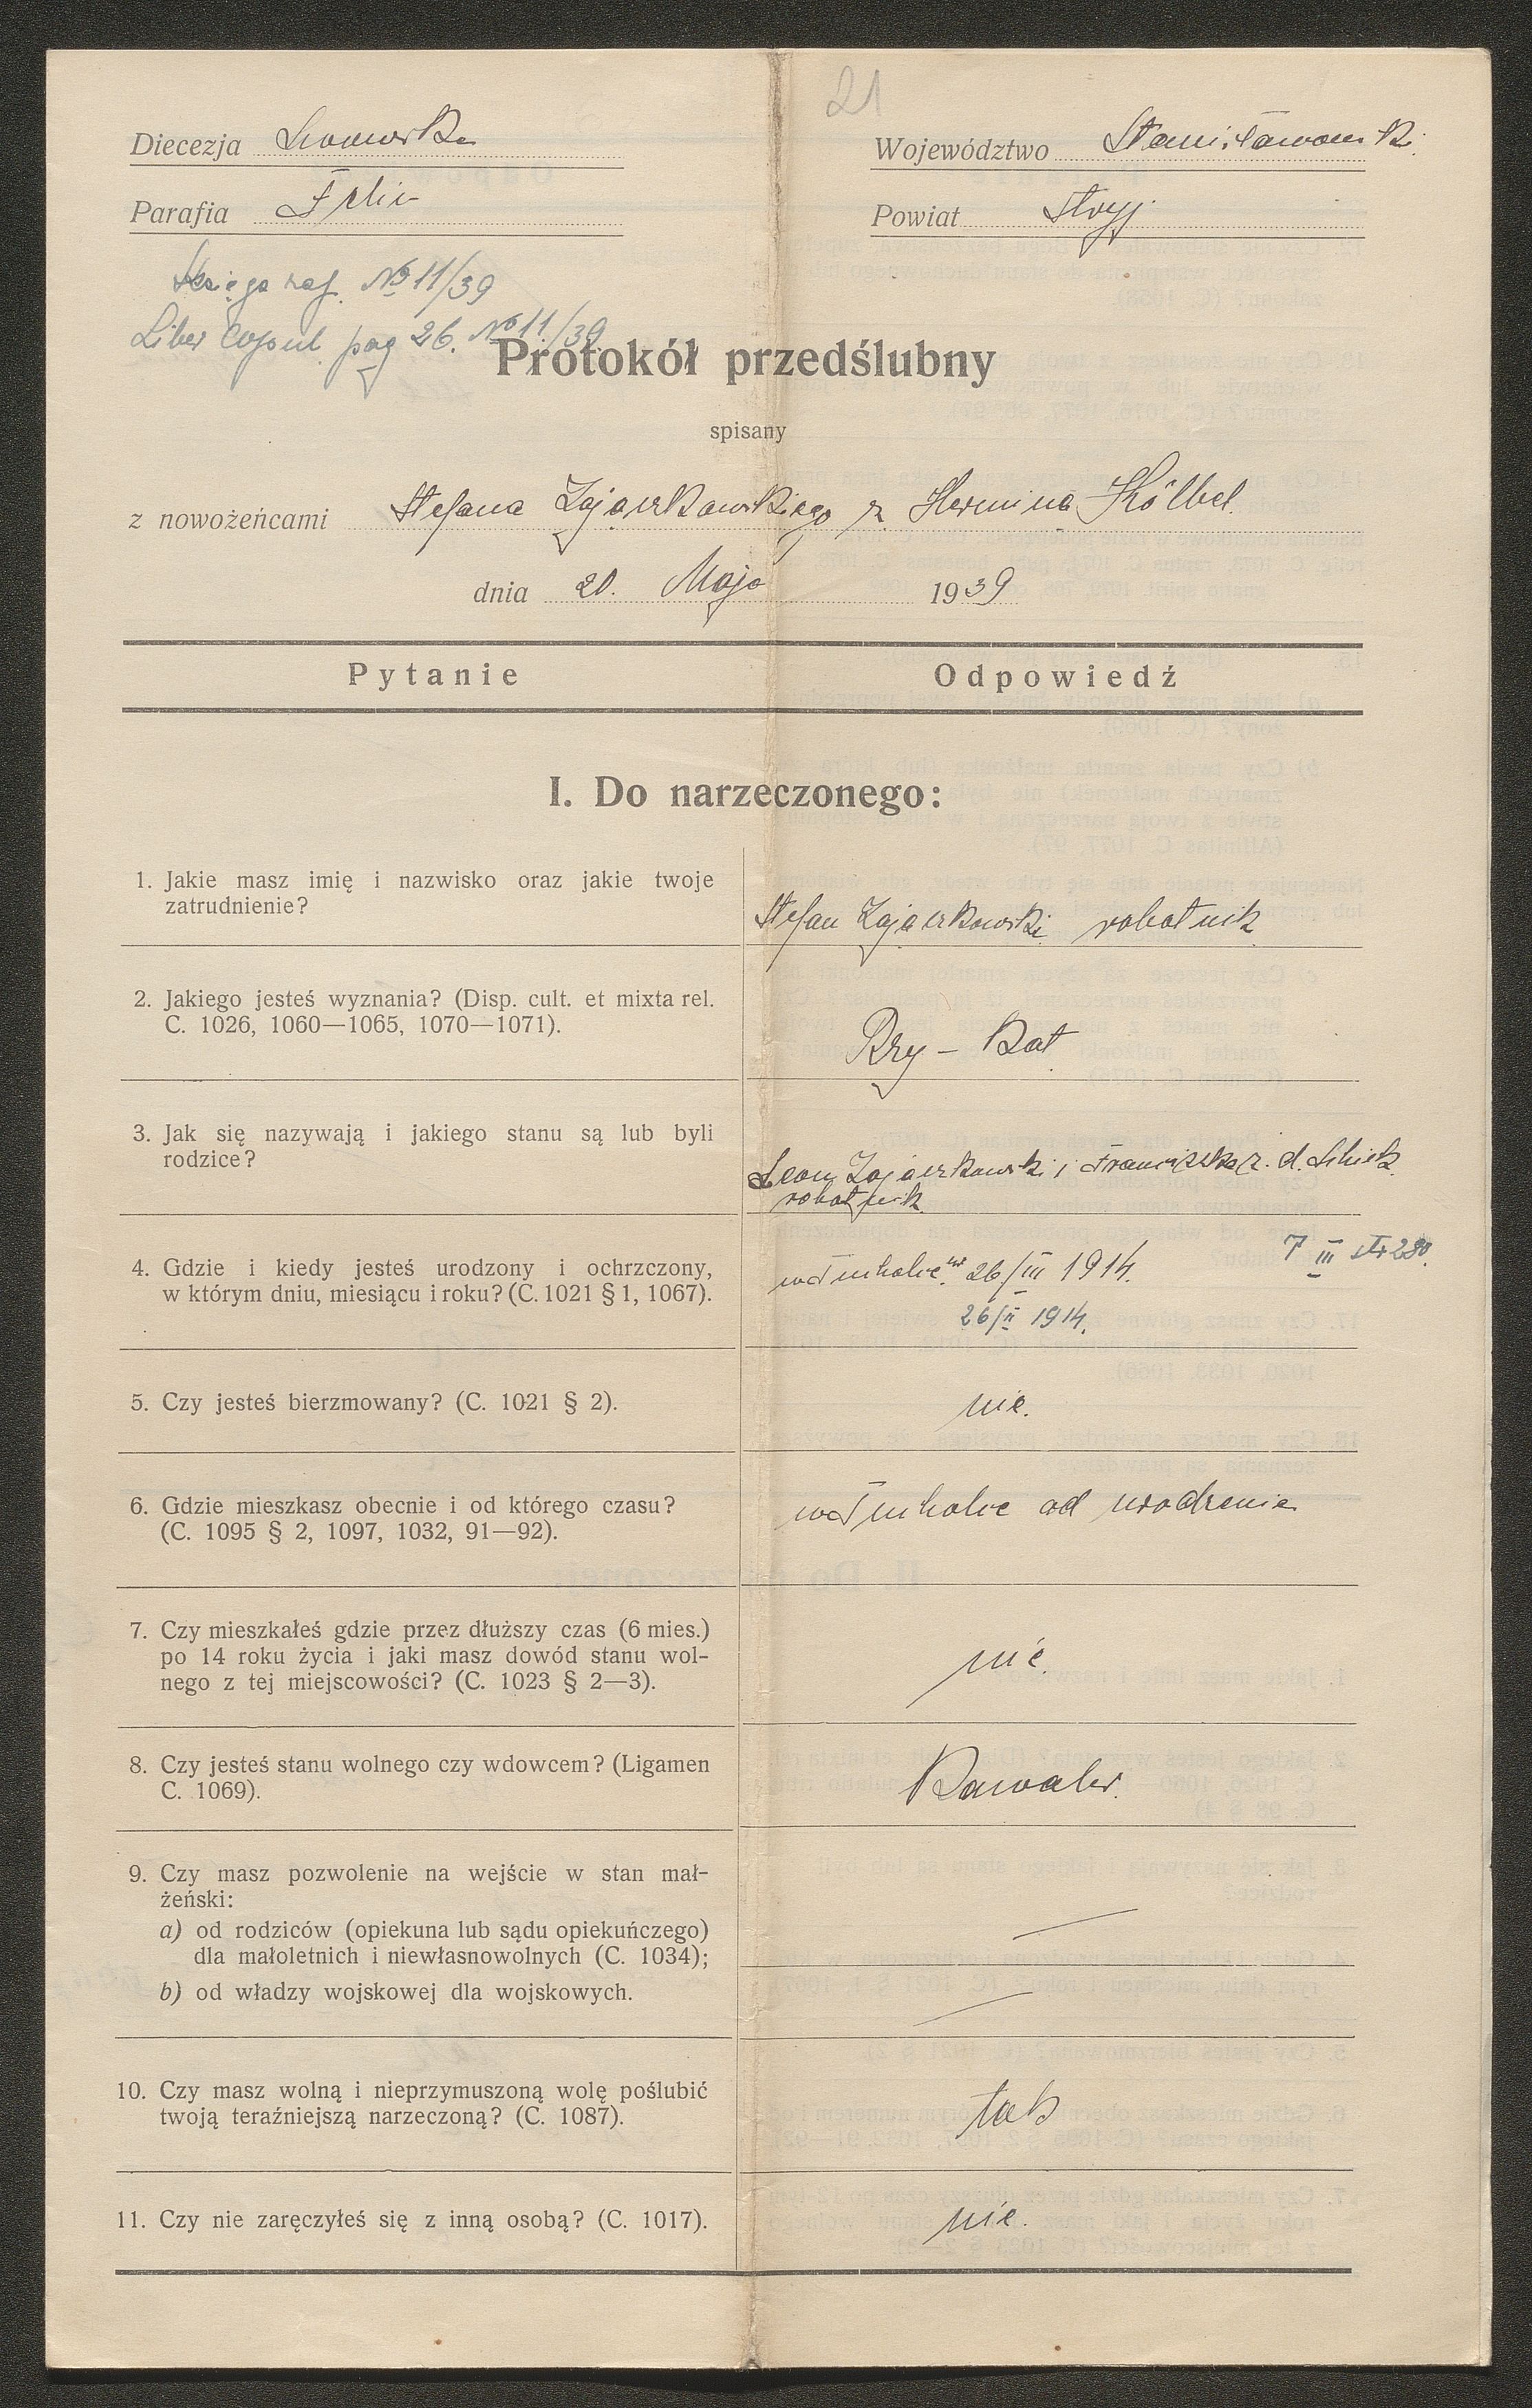 21
Diecezja Lwowska
Województwo Stanisławowski
Parafia Felic
Powiat Stryj
Księga zaf. № 11/39
Liber Copul. pag 26. № 11/39
Protokół przedślubny
spisany
z nowożeńcami Stefana Zajaczkowskiego z Hermina Kölbel.
dnia 20. Maja 1939
Pytanie
Odpowiedź
I. Do narzeczonego:
1. Jakie masz imię i nazwisko oraz jakie twoje
zatrudnienie?
Stefan Zajaczkowski robotnik
2. Jakiego jesteś wyznania? (Disp. cult. et mixta rel.
C. 1026, 1060—1065, 1070—1071).
Rzy - Kat
3. Jak się nazywają i jakiego stanu są lub byli
rodzice?
Leon Zajaczkowski i Franciszka z. d.
robotnik
4. Gdzie i kiedy jesteś urodzony i ochrzczony,
w którym dniu, miesiącu i roku? (C. 1021 § 1, 1067).
7 III str 280.
w Tucholce 26/III 1914.
26/II 1914.
5. Czy jesteś bierzmowany? (C. 1021 § 2).
nie.
6. Gdzie mieszkasz obecnie i od którego czasu?
(C. 1095 § 2, 1097, 1032, 91—92).
w Tucholce od urodzenia
7. Czy mieszkałeś gdzie przez dłuższy czas (6 mies.)
po 14 roku życia i jaki masz dowód stanu wol-
nego z tej miejscowości? (C. 1023 § 2—3).
nie.
8. Czy jesteś stanu wolnego czy wdowcem? (Ligamen
C. 1069).
Kawaler.
9. Czy masz pozwolenie na wejście w stan mał-
żeński:
a) od rodziców (opiekuna lub sądu opiekuńczego)
dla małoletnich i niewłasnowolnych (C. 1034);
b) od władzy wojskowej dla wojskowych.
10. Czy masz wolną i nieprzymuszoną wolę poślubić
twoją teraźniejszą narzeczoną? (C. 1087).
tak
11. Czy nie zaręczyłeś się z inną osobą? (C. 1017).
nie.